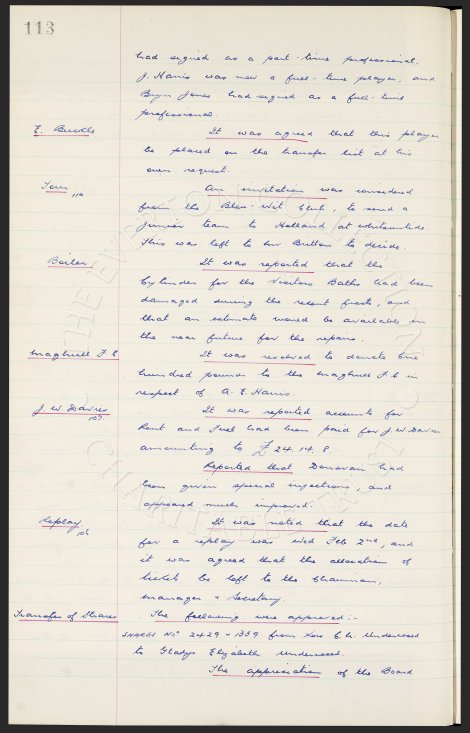 113
had signed as a part-time professional,
J. Harris was now a full-time player, and
Bryn Jones had signed as a full-time
professional
E. Buckle It was agreed that this player
be placed on the transfer list at his
own request.
Tour 110 An invitation was considered
from the Blau-Wit Club, to send a
junior team to Holland at Whitsuntide.
This was left to Mr Britton to decide.
Boiler It was reported that the
Cylinder for the Visitors Baths had been
damaged during the recent frosts, and
that an estimate would be available in
the near future for the repairs.
Maghull F.C It was resolved to donate one
hundred pounds to the Maghull F.C in
respect of A. E. Harris.
J. W. Davies 107 It was reported accounts for
Rent and Fuel had been paid for J. W. Davies
amounting to £24.14.8.
Reported that Donovan had
been given special injections, and
appeared much improved.
Replay 106 It was noted that the date
for a replay was Wed Feb 2nd, and
it was agreed that the allocation of
tickets be left to the Chairman,
Manager & Secretary.
Transfer of Shares The following were approved:-
SHARES Nos 2429 & 1339 from C. H. Underwood
to Gladys Elizabeth Underwood.
The appreciation of the Board
THE EVERTON COLLECTION
CHARITABLE TRUST